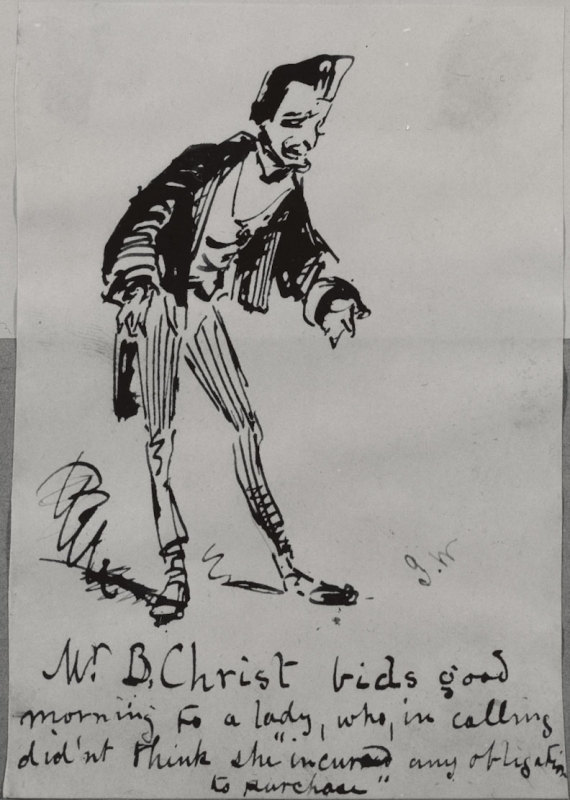 J.W
Mr B. Christ bids good
morning to a lady, who, in calling
did'nt think she "incured any obligation
to purchase"